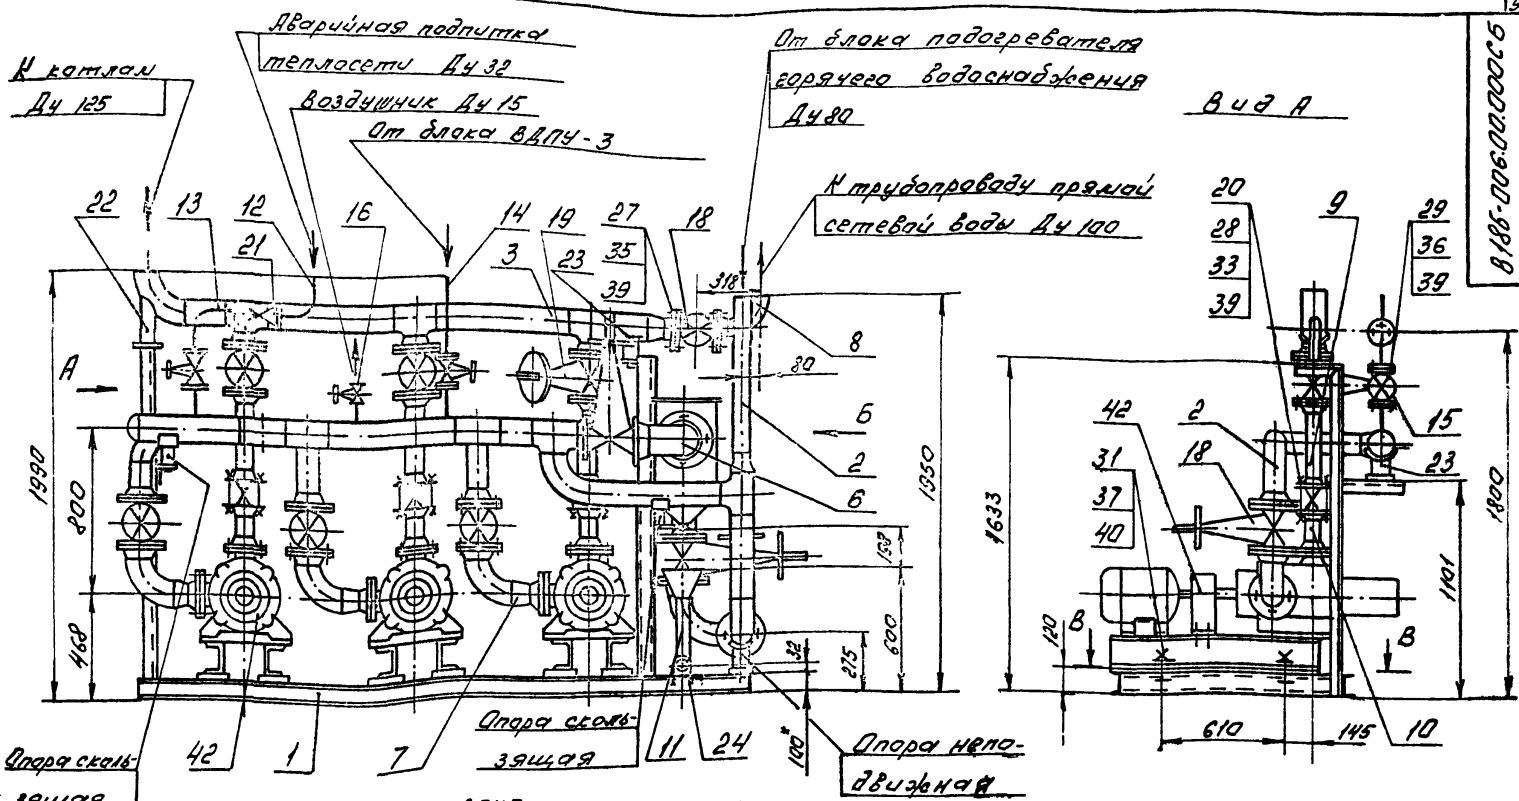 В186-ПО6.00.000СБ
Аварийная подпитка
теплосети Ду 32
К котлам
Ду 125
Воздушник Ду 15
От блока ВДПУ-3
От блока подогревателя
горячего водоснабжения
Ду 80
К трубопроводу прямой
сетевой воды Ду 100
Вид А
22 13 12 21 16 14 3 19 23 27 35 39 18
318
8
80
А
Б
2
6
1990
800
468
1950
150
600
275
32
100*
42 1 7 11 24
Опора сколь-
зящая
Опора сколь-
зящая
Опора непо-
движная
20
28
33
39
9
29
36
39
42 2
31
37
40
18
15
23
1633
1800
1101
120
В В
610 145 10